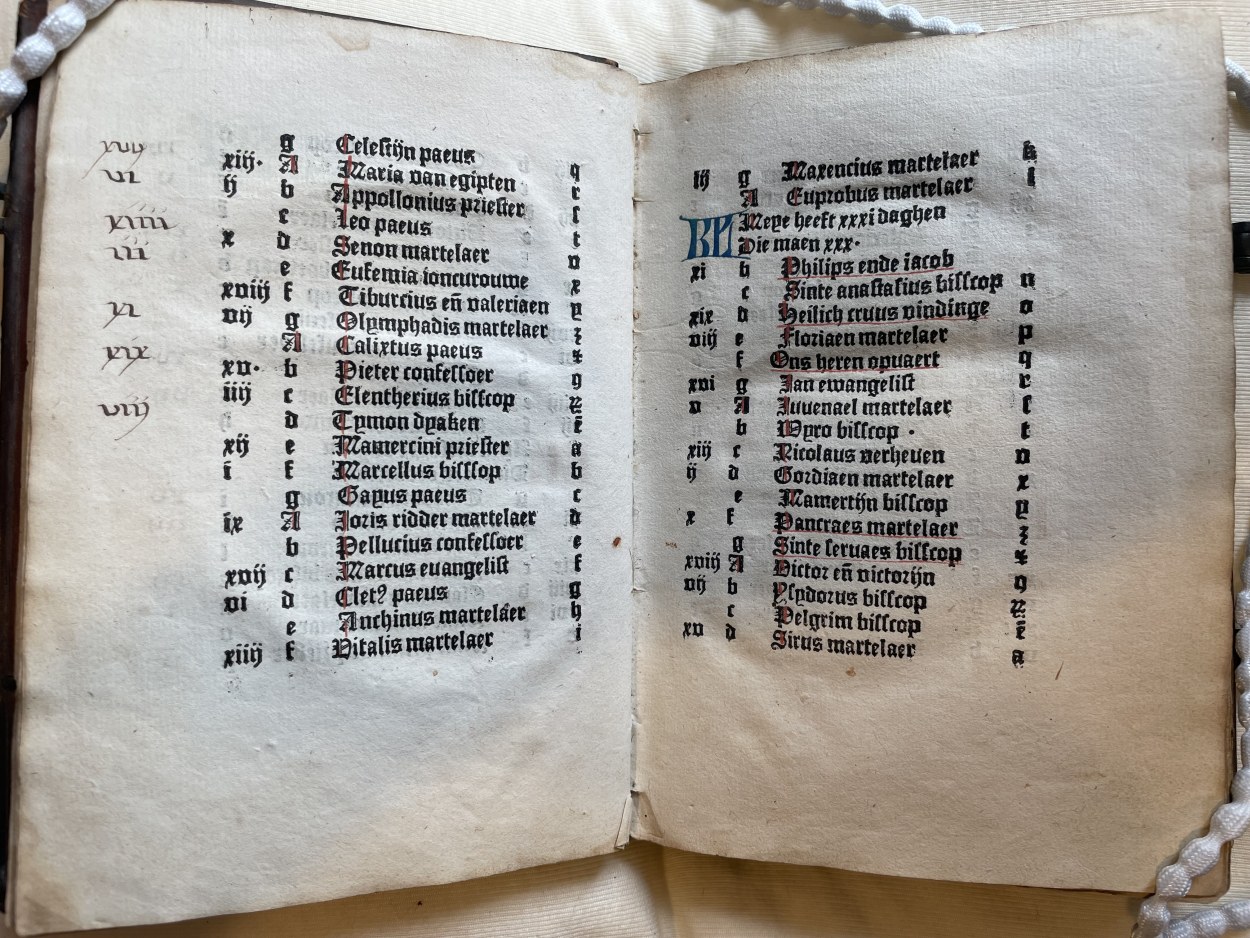 xvij
vi
xiiii
iii
xi
xix
viij
g Celestijn paeus q
xiij. A Maria van egipten r
ij b Appollonius priester ſ
c Leo paeus t
x d Senon martelaer v
e Eufemia ioncurouwe x
xviij f Tiburcius eñ valeriaen y
vij g Olymphadis martelaer z
A Calixtus paeus
xv. b Pieter confessoer 9
iiij c Elentherius bisscop
d Tymon dyaken
xij e Mamercini priester a
i f Marcellus bisscop b
g Gayus paeus c
ix A Joris ridder martelaer d
b Pellucius confessoer e
xvij c Marcus euangelist f
vi d Clet9 paeus g
e Anchinus martelaer h
xiiij f Vitalis martelaer i
iij g Maxencius martelaer k
A Euprobus martelaer l
KL Meye heeft xxxi daghen
Die maen xxx.
xi b Philips ende iacob
c Sinte anastasius bisscop n
xix d Heilich cruus vindinge o
viij e Floriaen martelaer p
f Ons heren opuaert q
xvi g Jan ewangelist r
v A Juuenael martelaer ſ
b Wyro bisscop . t
xiij c Nicolaus verheuen v
ij d Gordiaen martelaer x
e Mamertijn bisscop y
x f Pancraes martelaer z
g Sinte seruaes bisscop
xviij A Victor eñ victorijn 9
vij b Ysydorus bisscop
c Pelgrim bisscop
xv d Sirus martelaer a